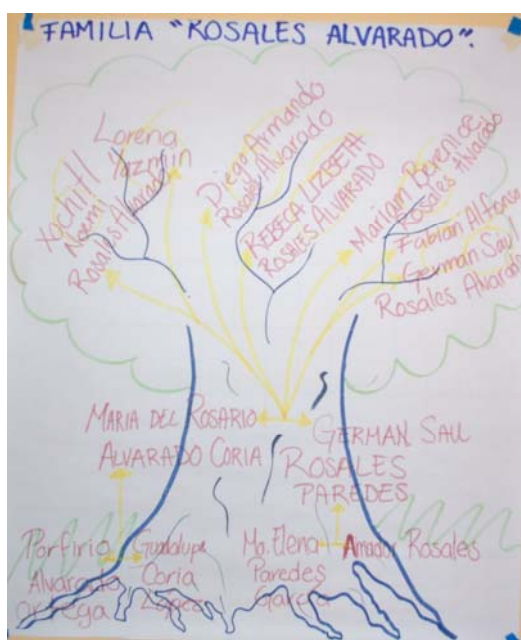 FAMILIA "ROSALES ALVARADO".
Xochitl
Noemi
Rosales Alvarado
Lorena
Yazmin
Diego Armando
Rosales Alvarado
REBECA LIZBETH
ROSALES ALVARADO
Mariam Berenice
Rosales Alvarado
Fabian Alfonso
German Saul
Rosales Alvarado
MARIA DEL ROSARIO
ALVARADO CORIA
GERMAN SAUL
ROSALES
PAREDES
Porfirio
Alvarado
Guadalupe
Coria
López
Ma. Elena
Paredes
García
Amador Rosales